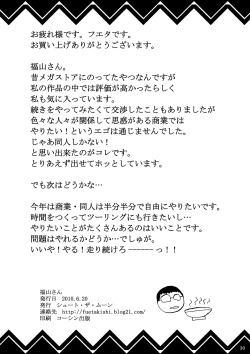 お疲れ様です。フエタです。
お買い上げありがとうございます。
福山さん。
昔メガストアにのってたやつなんですが
私の作品の中では評価が高かったらしく
私も気に入っています。
続きをやってみたくて交渉したこともありましたが
色々な人々が関係して思惑がある商業では
やりたい！というエゴは通じませんでした。
じゃあ同人しかない！
と思い出来たのがコレです。
とりあえず出せてホッとしています。
でも次はどうかな…
今年は商業・同人は半分半分で自由にやりたいです。
時間をつくってツーリングにも行きたいし…
やりたいことがたくさんあるのはいいことです。
問題はやれるかどうか…でしゅが。
いいや！やる！走り続けろ------っ！！
福山さん
発行日　2010.6.20
発行　シュート・ザ・ムーン
連絡先　http://fuetakishi.blog21.com/
印刷　コーシン出版